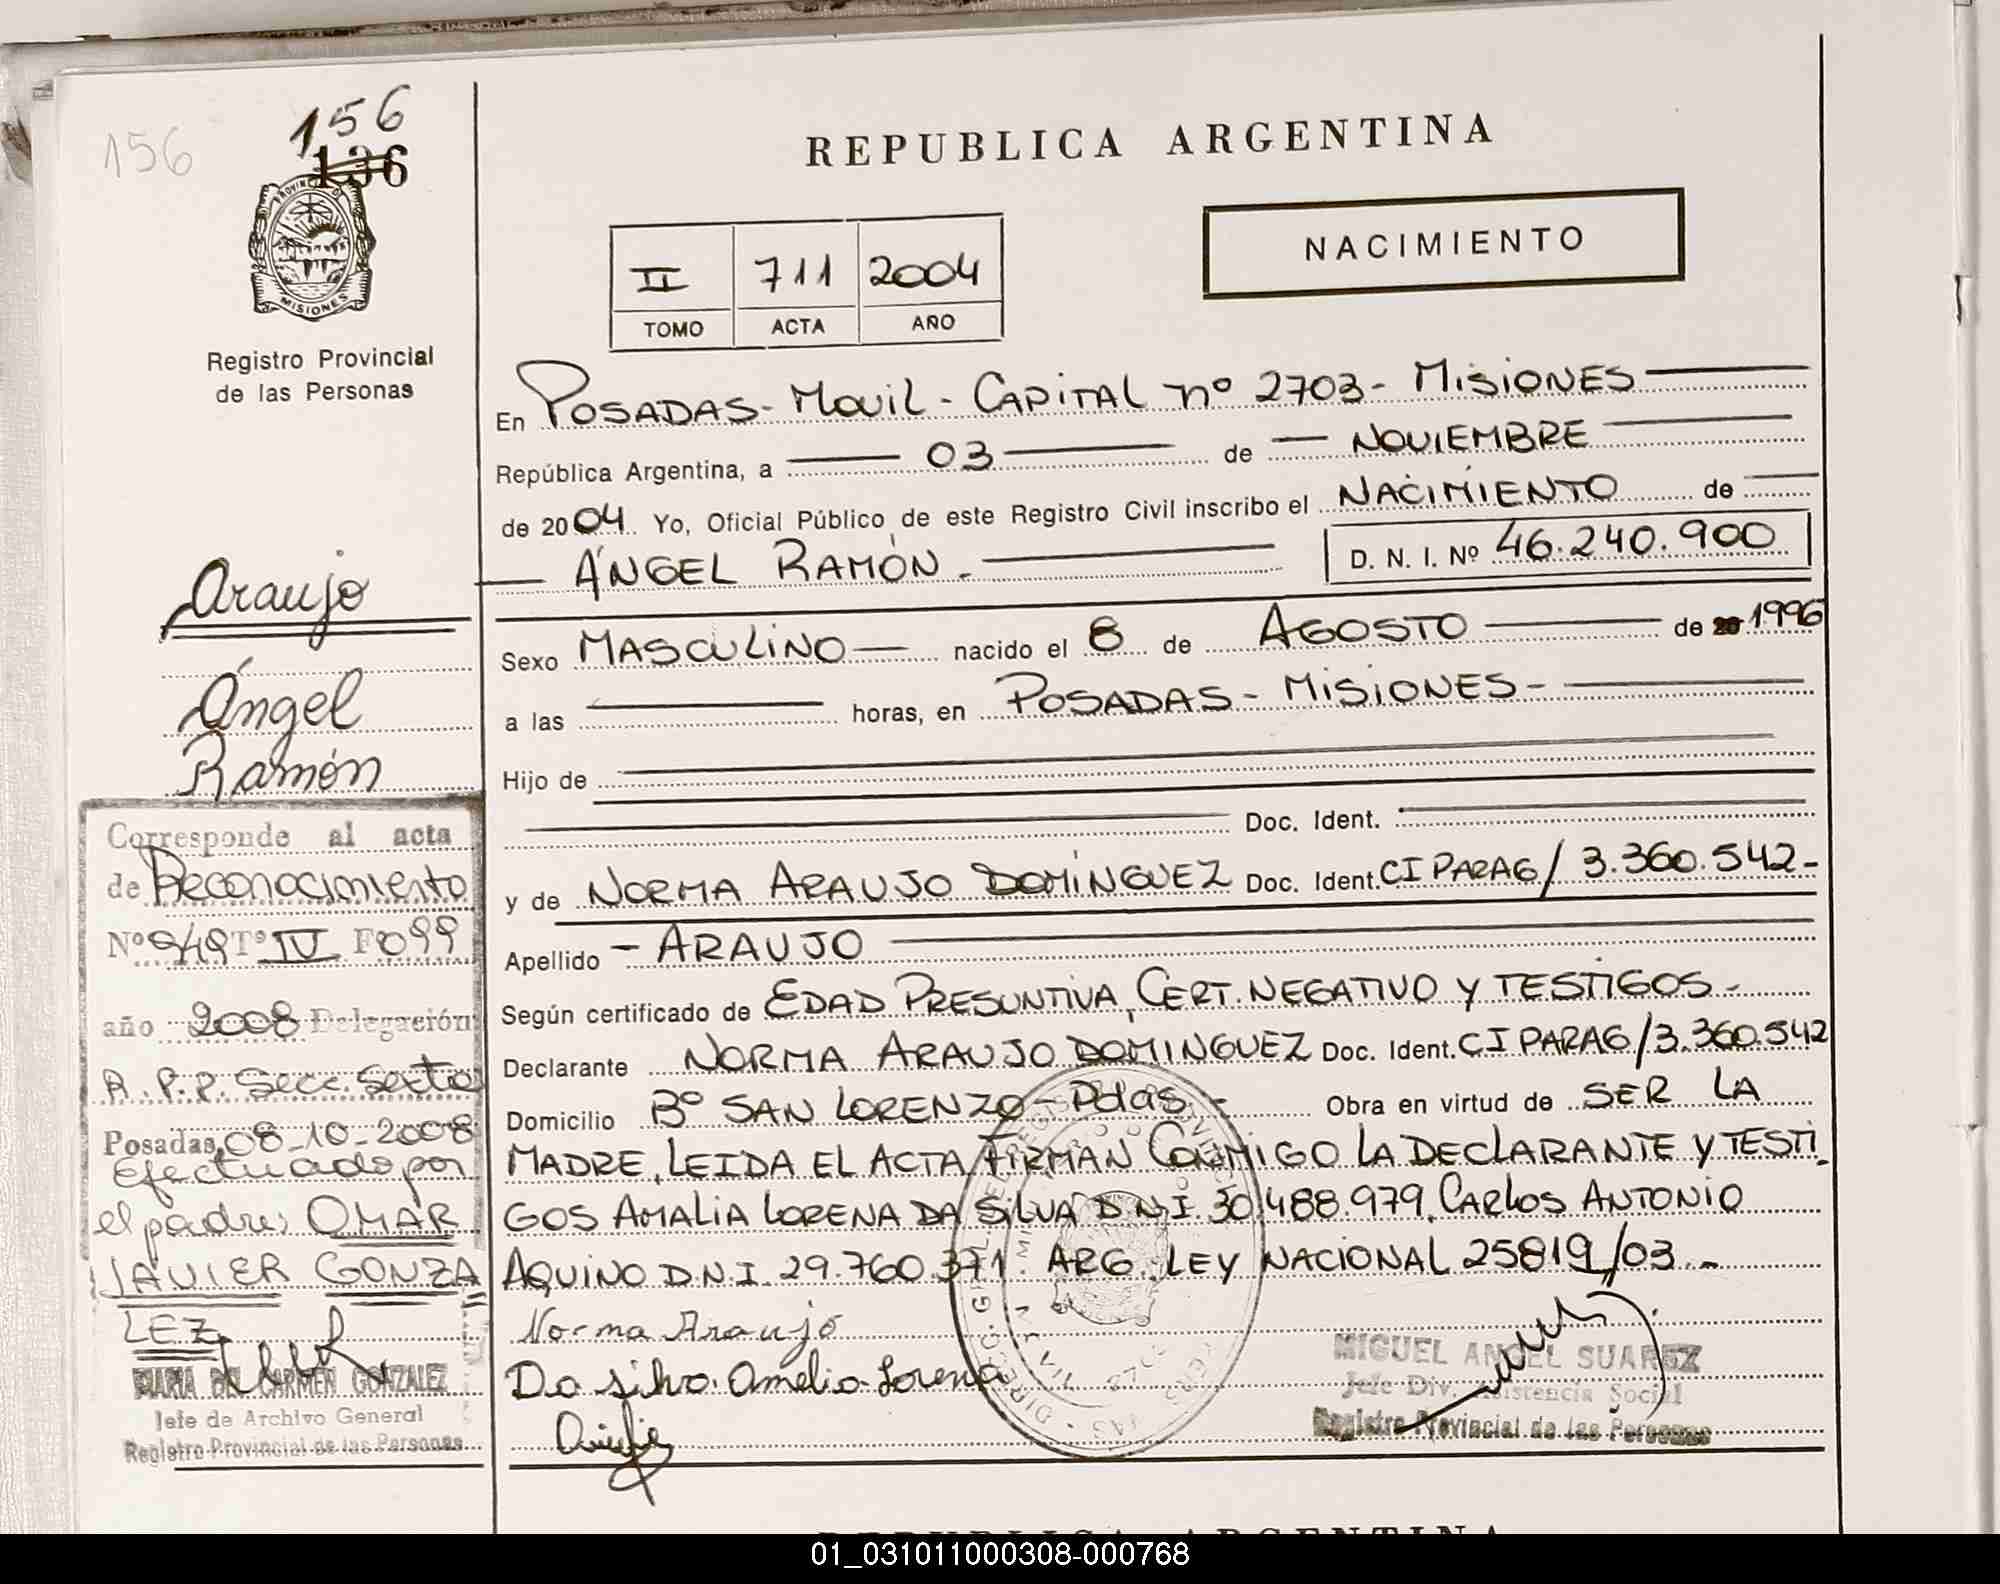 156
156
136
PROVINCIA DE
MISIONES
Registro Provincial
de las Personas
REPUBLICA ARGENTINA
NACIMIENTO
II 711 2004
TOMO ACTA AÑO
En POSADAS - MOVIL - CAPITAL nº 2703 - MISIONES
República Argentina, a 03 de NOVIEMBRE
de 2004 Yo, Oficial Público de este Registro Civil inscribo el NACIMIENTO de
ÁNGEL RAMÓN.- D. N. I. Nº 46.240.900
Sexo MASCULINO nacido el 8 de AGOSTO de 20 1996
a las horas, en POSADAS - MISIONES -
Hijo de
Doc. Ident.
y de NORMA ARAUJO DOMÍNGUEZ Doc. Ident. CI PARAG/ 3.360.542-
Apellido - ARAUJO
Según certificado de EDAD PRESUNTIVA, CERT. NEGATIVO Y TESTIGOS.-
Declarante NORMA ARAUJO DOMINGUEZ Doc. Ident. CI PARAG/3.360.542
Domicilio Bº SAN LORENZO - Pdas.- Obra en virtud de SER LA
MADRE, LEIDA EL ACTA FIRMAN CONMIGO LA DECLARANTE Y TESTI-
GOS AMALIA LORENA DA SILVA D.N.I. 30.488.979, CARLOS ANTONIO
AQUINO D.N.I. 29.760.371. ARG. LEY NACIONAL 25819/03.-
Norma Araujo
Da silva Amelia Lorena
MIGUEL ANGEL SUAREZ
Jefe Div. Asistencia Social
Registro Provincial de las Personas
Araujo
Ángel
Ramón
Corresponde al acta
de Reconocimiento
Nº 949 Tº IV F 099
año 2008 Delegación
R.P.P. Secc. Sexta
Posadas, 08-10-2008
Efectuado por
el padre, OMAR
JAVIER GONZA
LEZ
MARIA DEL CARMEN GONZALEZ
Jefe de Archivo General
Registro Provincial de las Personas
REPUBLICA ARGENTINA
01_031011000308-000768